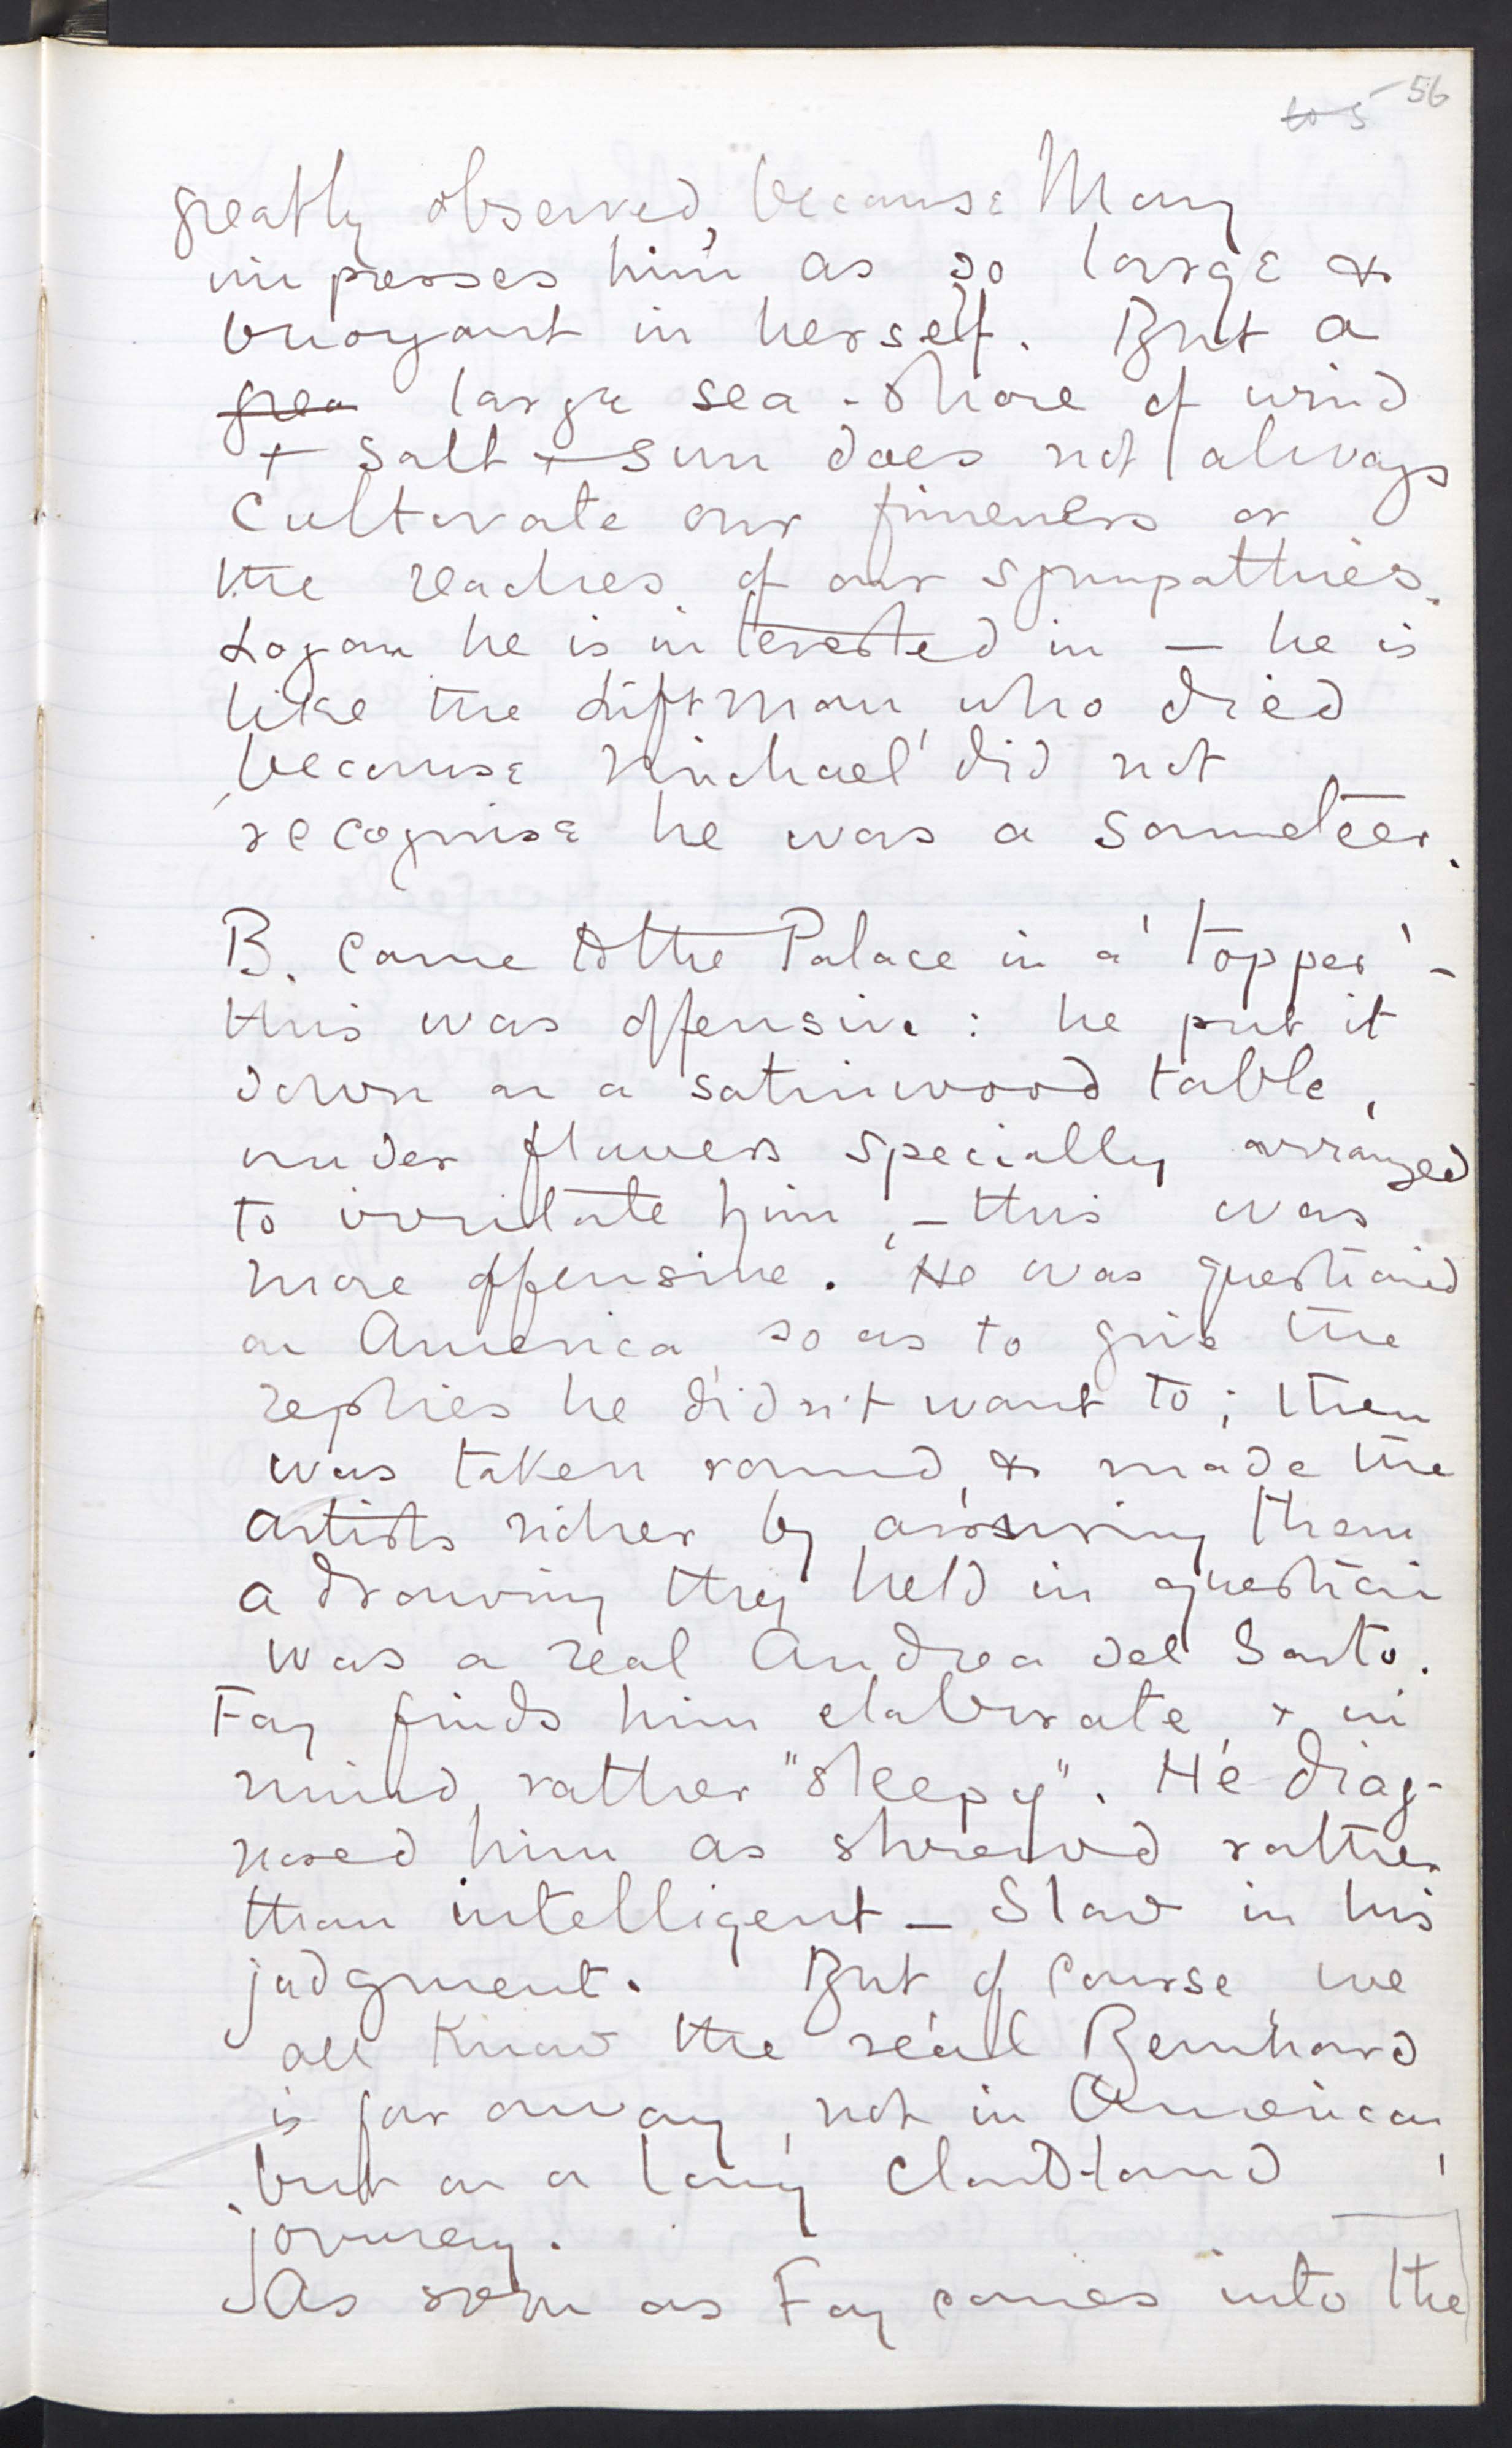 56
greatly observed, because Mary
impresses him as so large &
buoyant in herself. But a
grea large sea-shore of wind
+ salt + sun does not always
cultivate our fineness or
the reaches of our sympathies.
Logan he is interested in — he is
like the Liftman who died
because Michael did not
recognise he was a Sonneteer.
B. came to the Palace in a 'topper' -
this was offensive: he put it
down on a satinwood table,
under flowers specially arranged
to irritate him, - this was
more offensive. He was questioned
on America so as to give the
replies he didn't want to; then
was taken round, & made the
artists richer by assuring them
a drawing they held in question
was a real Andrea del Sarto.
Fay finds him elaborate, + in
mind, rather "sleepy". He diag-
nosed him as shrewd rather
than intelligent - Slav in his
judgment. But of course we
all know the real Bernhard
is far away, not in American,
but on a long Cloudland
journey.
As soon as Fay comes into the